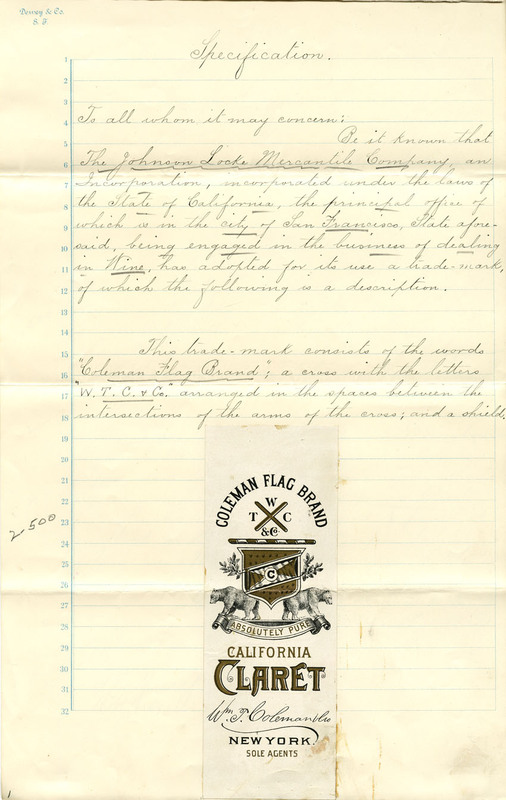 Dewey & Co.
S. F.
Specification.
1
2
3
4
To all whom it may concern:
5
Be it known that
6
The Johnson Locke Mercantile Company, an
7
Incorporation, incorporated under the laws of
8
the State of California, the principal office of
9
which is in the city of San Francisco, State afore-
10
said, being engaged in the business of dealing
11
in Wine, has adopted for its use a trade-mark,
12
of which the following is a description.
13
14
15
This trade-mark consists of the words
16
"Coleman Flag Brand"; a cross with the letters
17
"W. T. C. & Co." arranged in the spaces between the
18
intersections of the arms of the cross; and a shield.
19
20
21
22
23
24
25
26
27
28
29
30
31
32
2500
COLEMAN FLAG BRAND
W
T C
& Co
C
ABSOLUTELY PURE
CALIFORNIA
CLARET
Wm. T. Coleman & Co
NEW YORK.
SOLE AGENTS